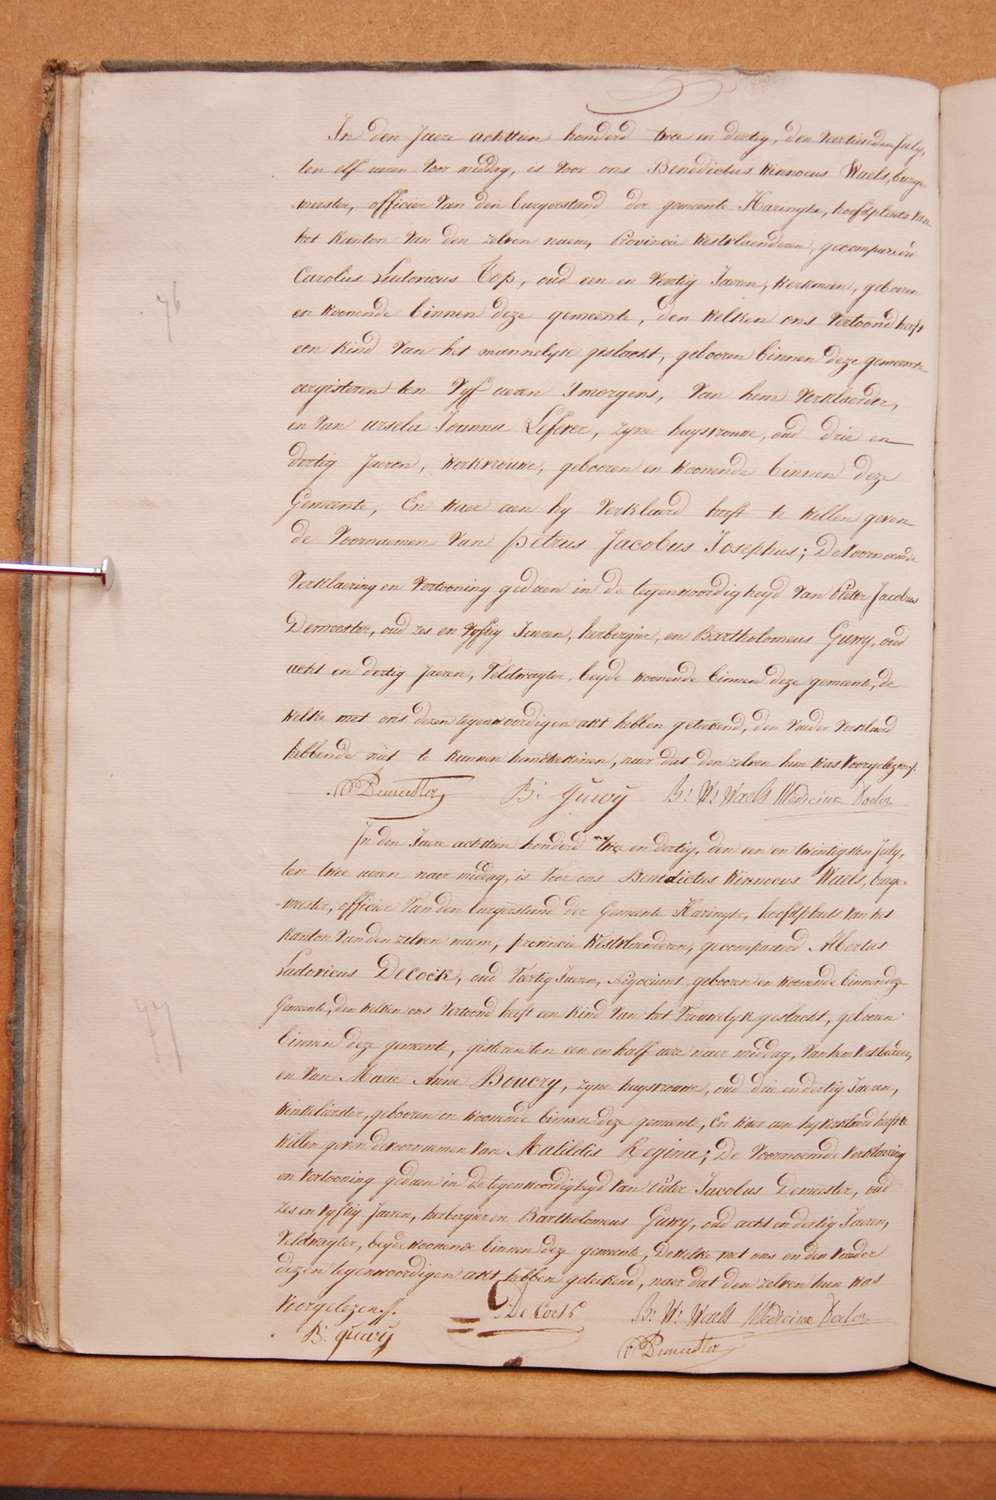 In den Jaere achttien honderd twee en dertig, den July,
ten elf ueren voor middag, is voor ons Benedictus Winnocus Waels, burge-
meester, officier van den burgerstand der gemeente Haringhe, hoofdplaets van
het kanton van den zelven naem, Provincie Westvlaenderen, gecompareerd
Carolus Ludovicus Top, oud een en veertig Jaeren, werkman, gebooren
en woonende binnen deze gemeente, den welken ons vertoond heeft
een kind van het mannelyk geslacht, gebooren binnen deze gemeente
eergisteren ten vyf ueren smorgens, van hem verklaerder,
en van Ursula Joanna Lefever, zyne huysvrouwe, oud drie en
dertig Jaeren, werkvrouwe, gebooren en woonende binnen deze
Gemeente, En waer aen hy verklaerd heeft te willen geven
de voornaemen van Petrus Jacobus Josephus; De voornoemde
verklaering en vertooning gedaen in de tegenwoordigheyd van Pieter Jacobus
Demeester, oud zes en vyftig Jaeren, herbergier, en Bartholomeus Guwy, oud
acht en dertig Jaeren, veldwagter, beyde woonende binnen deze gemeente, de
welke met ons dezen tegenwoordigen akt hebben geteekend, den vader verklaerd
hebbende niet te kunnen handteekenen, naer dat den zelven hun was voorgelezen ./.
P Demeester B. guwy B. W. Waels Medicine Doctor
76
In den Jaere achttien honderd twee en dertig, den een en twintigsten July,
ten twee ueren naer middag, is voor ons Benedictus Winnocus Waels, burge-
-meester, officier van den burgerstand der Gemeente Haringhe, hoofdplaets van het
kanton van den zelven naem, provincie Westvlaenderen, gecompareerd Albertus
Ludovicus Decock, oud veertig Jaeren, negociant gebooren en woonende binnen deze
Gemeente, den welken ons vertoond heeft een kind van het vrouwelyk geslacht, gebooren
binnen deze gemeente, gisteren ten een en half uere naer middag, van hem verklaerder,
en van Marie Anne Boucry, zyne huysvrouwe, oud drie en dertig Jaeren,
winkelierster, gebooren en woonende binnen deze gemeente, En waer aen hy verklaerd heeft te
willen geven de voornaemen van Mathildis Regina; De voornoemde verklaering
en vertooning gedaen in de tegenwoordigheyd van Pieter Jacobus Demeester, oud
zes en vyftig Jaeren, herbergier en Bartholomeus Guwy, oud acht en dertig Jaeren,
veldwagter, beyde woonende binnen deze gemeente, Dewelke met ons en den vader
dezen tegenwoordigen akt hebben geteekend, naer dat den zelven hun was
voorgelezen ./.
77
B. guwy De Cock B. W. Waels Medicine Doctor
P Demeester